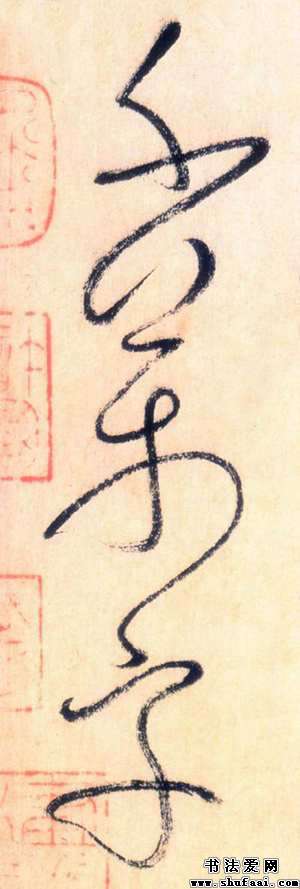 千萬字
书法爱网
www.shufaai.com